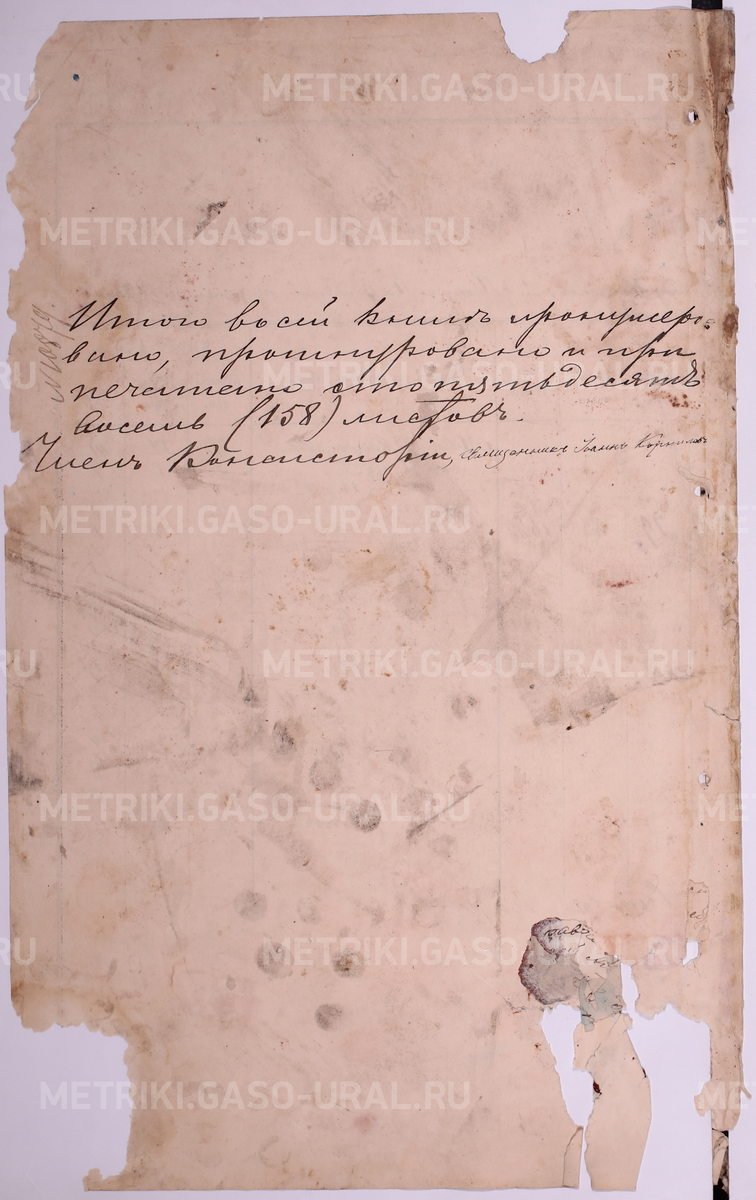 METRIKI.GASO-URAL.RU
METRIKI.GASO-URAL.RU
Итого в сей книгѣ пронумеро-
вано, прошнуровано и при
печатано сто пятьдесятъ
восемь (158) листовъ.
Членъ Консисторіи, Священникъ Іоаннъ Корниловъ
METRIKI.GASO-URAL.RU
METRIKI.GASO-URAL.RU
METRIKI.GASO-URAL.RU
METRIKI.GASO-URAL.RU
METRIKI.GASO-URAL.RU